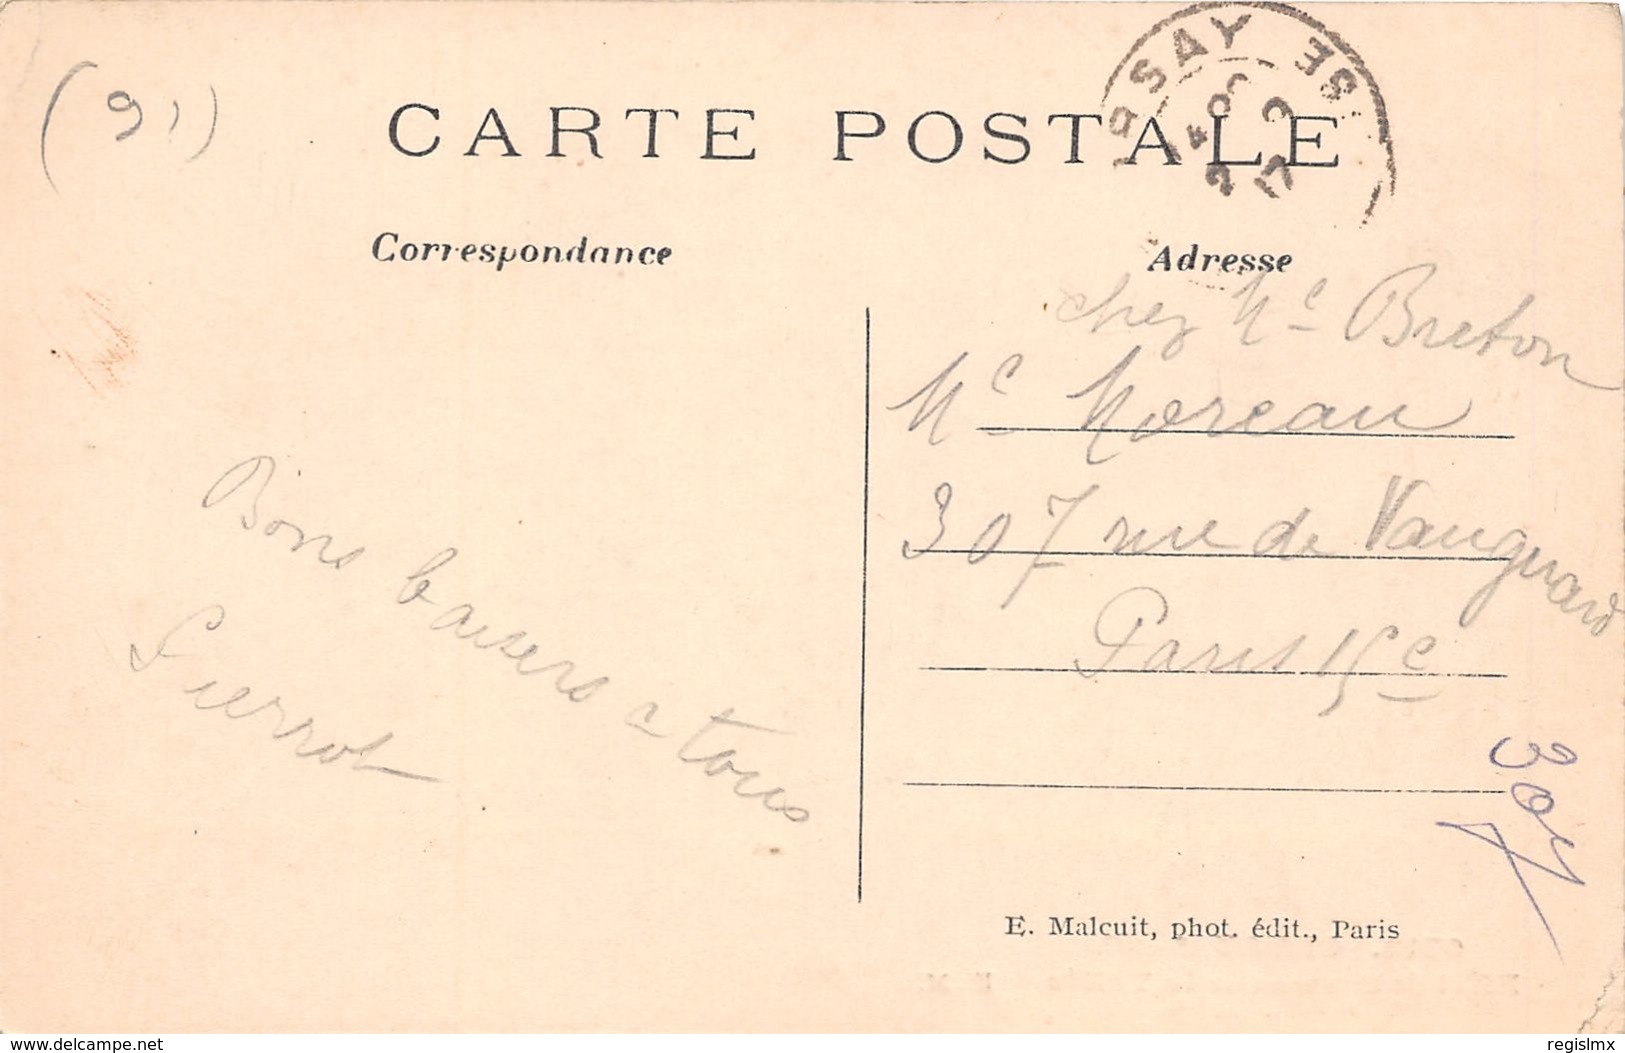 (91)
CARTE POSTALE
ORSAY
Correspondance
Adresse
chez Me Breton
Me Moreau
307 rue de Vaugirard
Paris 15e
Bons baisers a tous
Pierrot
307
E. Malcuit, phot. édit., Paris
www.delcampe.net
regislmx